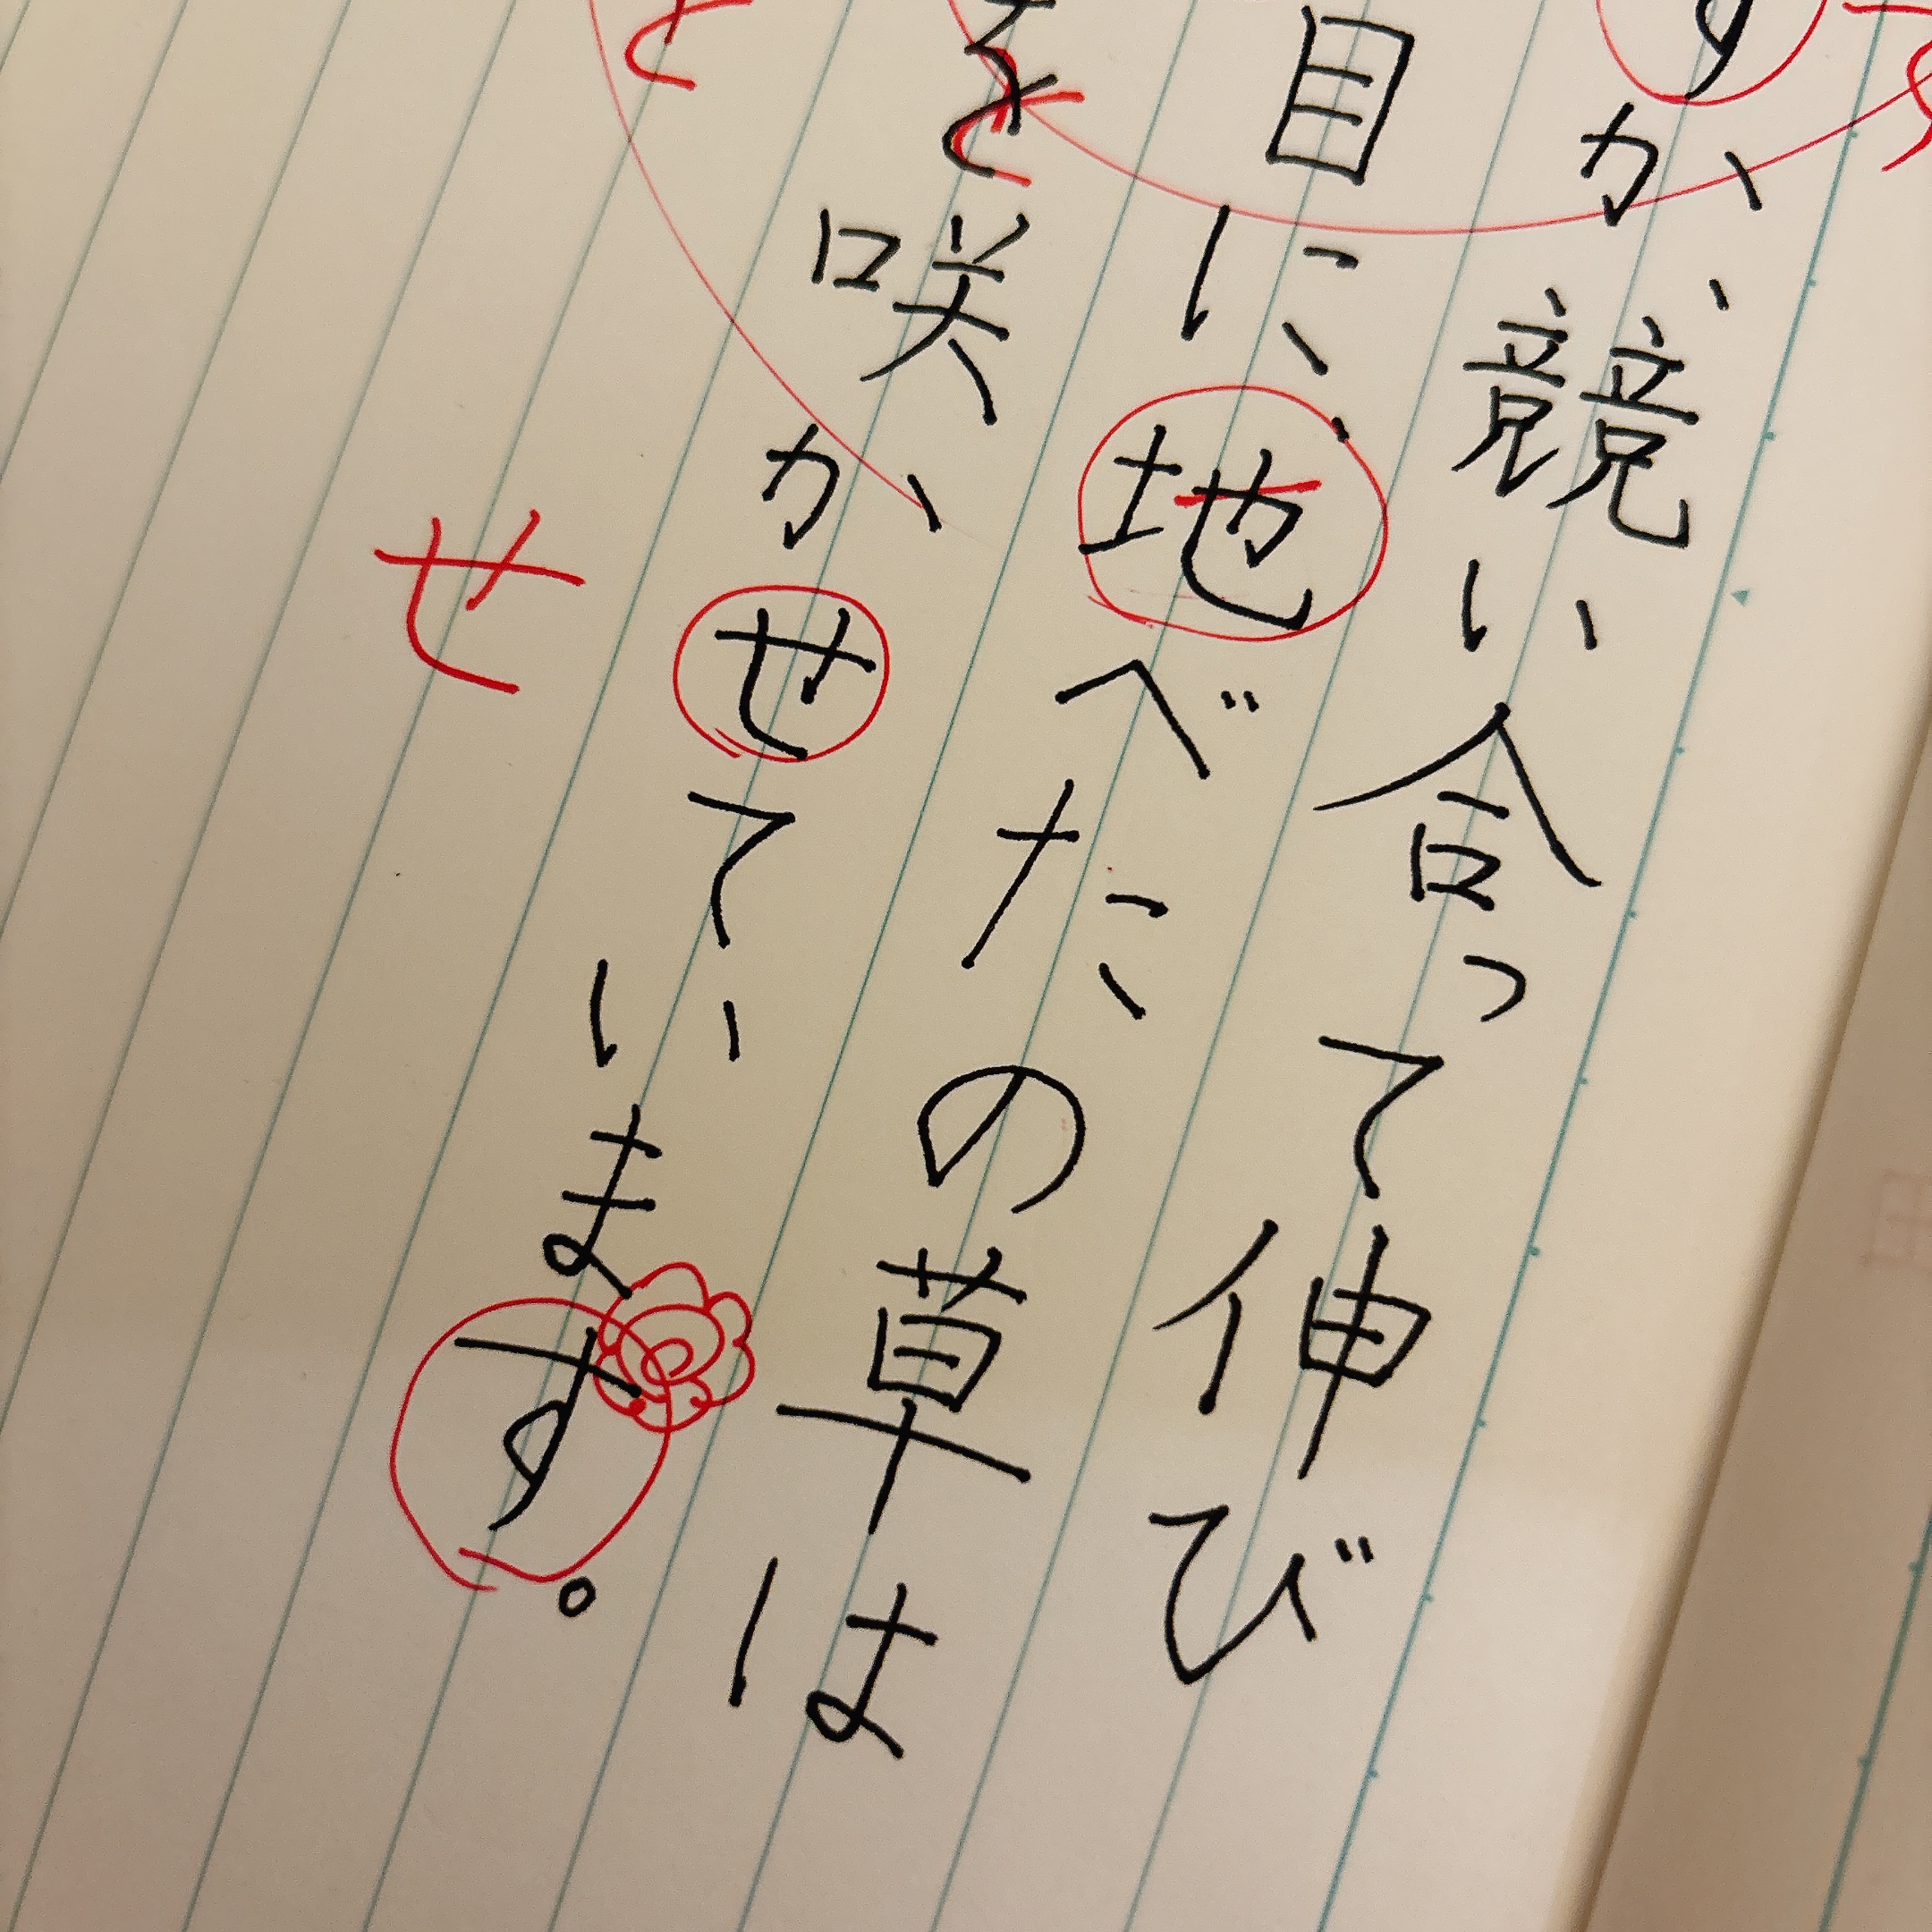 すか、競い合って伸び
目に、地べたの草は
を咲かせています。
せ